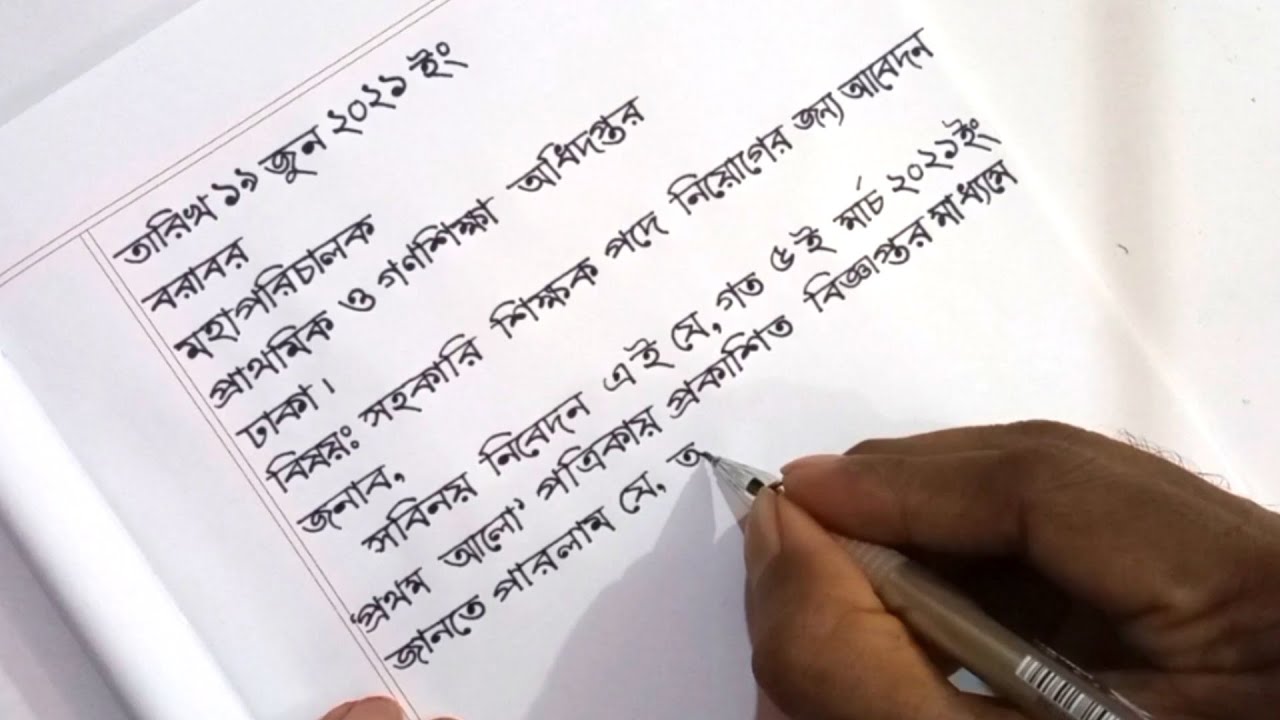 তারিখ ১৯ জুন ২০২১ ইং
বরাবর
মহাপরিচালক
প্রাথমিক ও গণশিক্ষা অধিদপ্তর
ঢাকা।
বিষয়ঃ সহকারি শিক্ষক পদে নিয়োগের জন্য আবেদন
জনাব,
সবিনয় নিবেদন এই যে, গত ৫ই মার্চ ২০২১ইং
'প্রথম আলো' পত্রিকায় প্রকাশিত বিজ্ঞপ্তির মাধ্যমে
জানতে পারলাম যে, ত